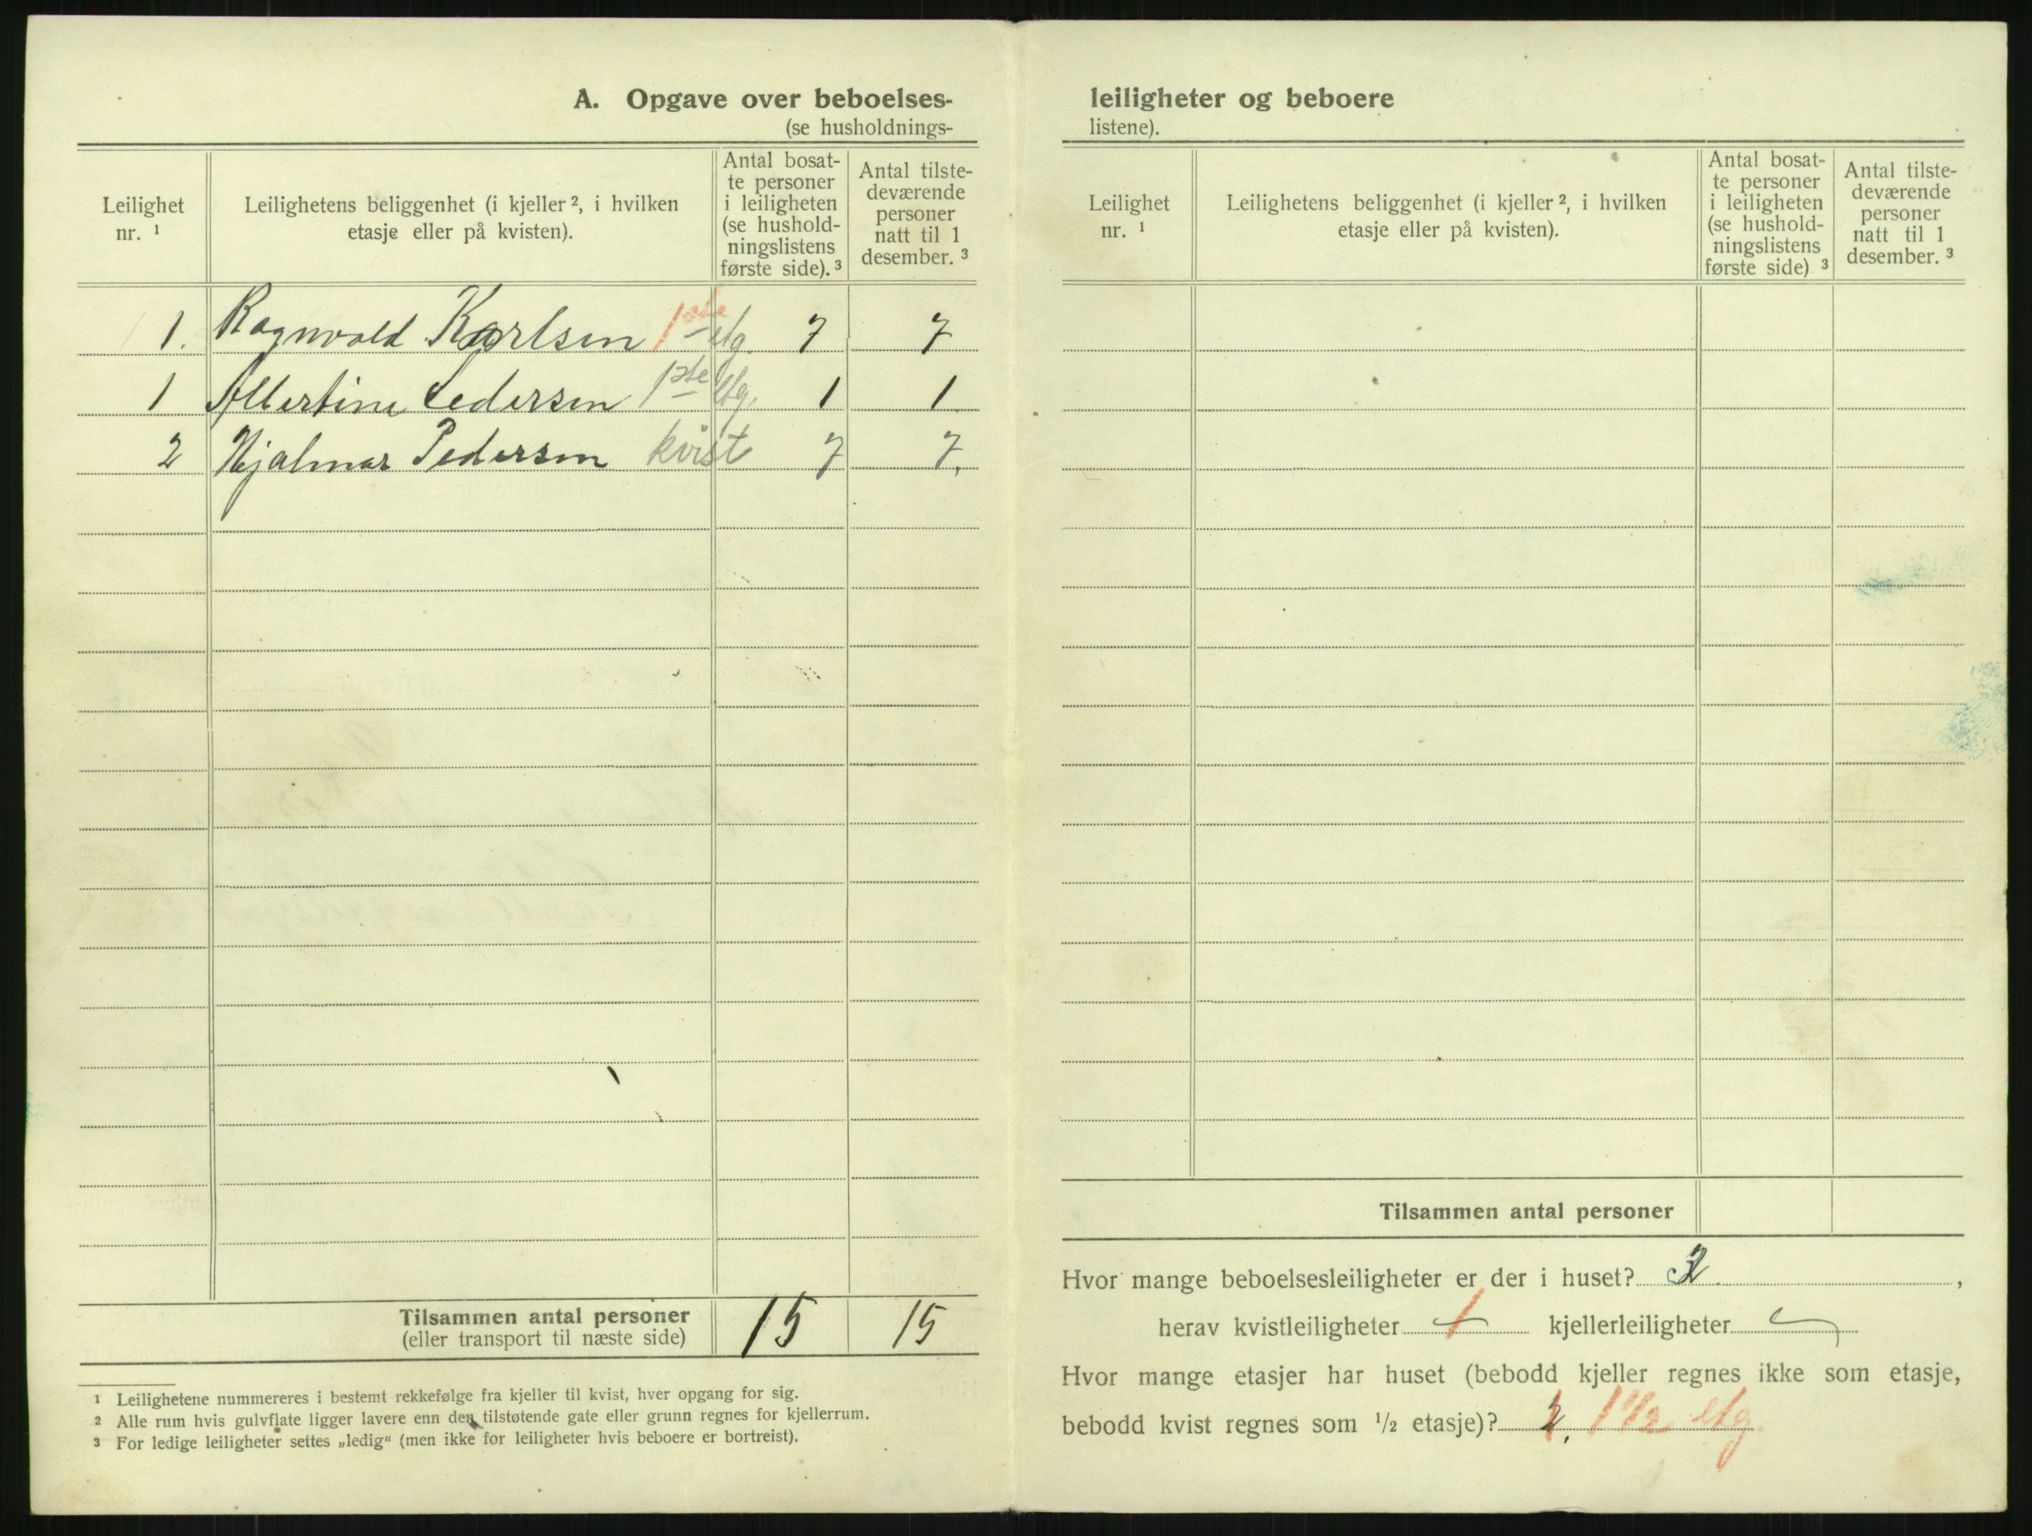 A. Opgave over beboelses-
(se husholdnings-
Leilighet
nr. ¹
Leilighetens beliggenhet (i kjeller ², i hvilken
etasje eller på kvisten).
Antal bosat-
te personer
i leiligheten
(se hushold-
ningslistens
første side). ³
Antal tilste-
deværende
personer
natt til 1
desember. ³
1. Ragnvald Karlsen 1ste etg. 7 7
1 Albertine Pedersen 1ste etg. 1 1
2 Hjalmar Pedersen kvist 7 7.
Tilsammen antal personer
(eller transport til næste side)
15 15
¹ Leilighetene nummereres i bestemt rekkefølge fra kjeller til kvist, hver opgang for sig.
² Alle rum hvis gulvflate ligger lavere enn den tilstøtende gate eller grunn regnes for kjellerrum.
³ For ledige leiligheter settes „ledig“ (men ikke for leiligheter hvis beboere er bortreist).
leiligheter og beboere
listene).
Leilighet
nr. ¹
Leilighetens beliggenhet (i kjeller ², i hvilken
etasje eller på kvisten).
Antal bosat-
te personer
i leiligheten
(se hushold-
ningslistens
første side) ³
Antal tilste-
deværende
personer
natt til 1
desember. ³
Tilsammen antal personer
Hvor mange beboelsesleiligheter er der i huset? 2. ,
herav kvistleiligheter 1 kjellerleiligheter
Hvor mange etasjer har huset (bebodd kjeller regnes ikke som etasje,
bebodd kvist regnes som ½ etasje)? 2. 1 1/2 etg.